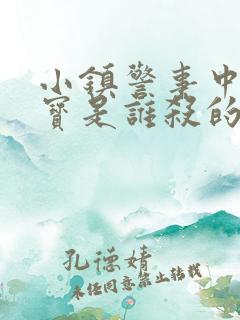 小鎮警事中
寶是誰殺的
孔德婧
未經同意禁止轉載